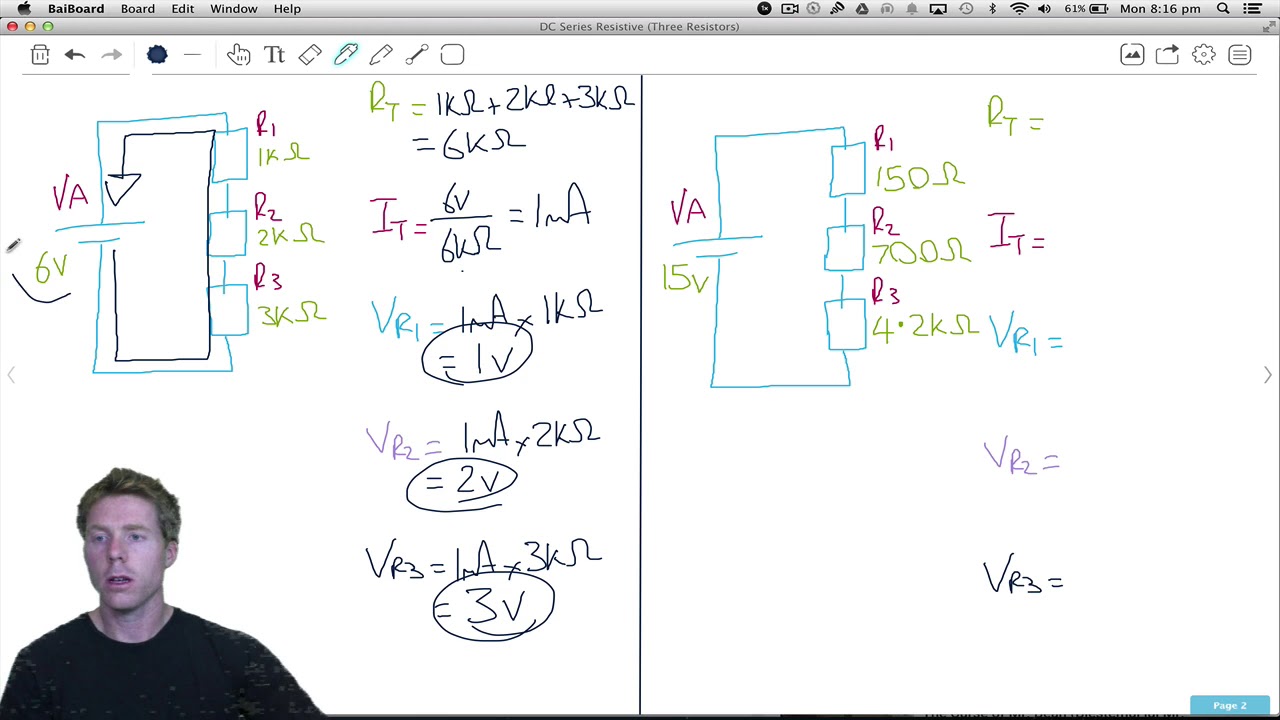 BaiBoard Board Edit Window Help
61% Mon 8:16 pm
DC Series Resistive (Three Resistors)
Tt
VA
6V
R1
1KΩ
R2
2KΩ
R3
3KΩ
RT = 1KΩ+2KΩ+3KΩ
= 6KΩ
IT = 6V/6KΩ = 1mA
VR1 = 1mA × 1KΩ
= 1V
VR2 = 1mA × 2KΩ
= 2V
VR3 = 1mA × 3KΩ
= 3V
VA
15V
R1
150Ω
R2
700Ω
R3
4.2KΩ
RT =
IT =
VR1 =
VR2 =
VR3 =
Page 2